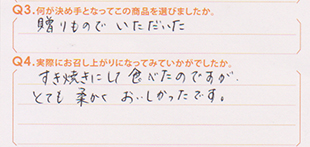 Q3.何が決め手となってこの商品を選びましたか。
贈りもので いただいた
Q4.実際にお召し上がりになってみていかがでしたか。
すき焼きにして 食べたのですが、
とても 柔かく おいしかったです。